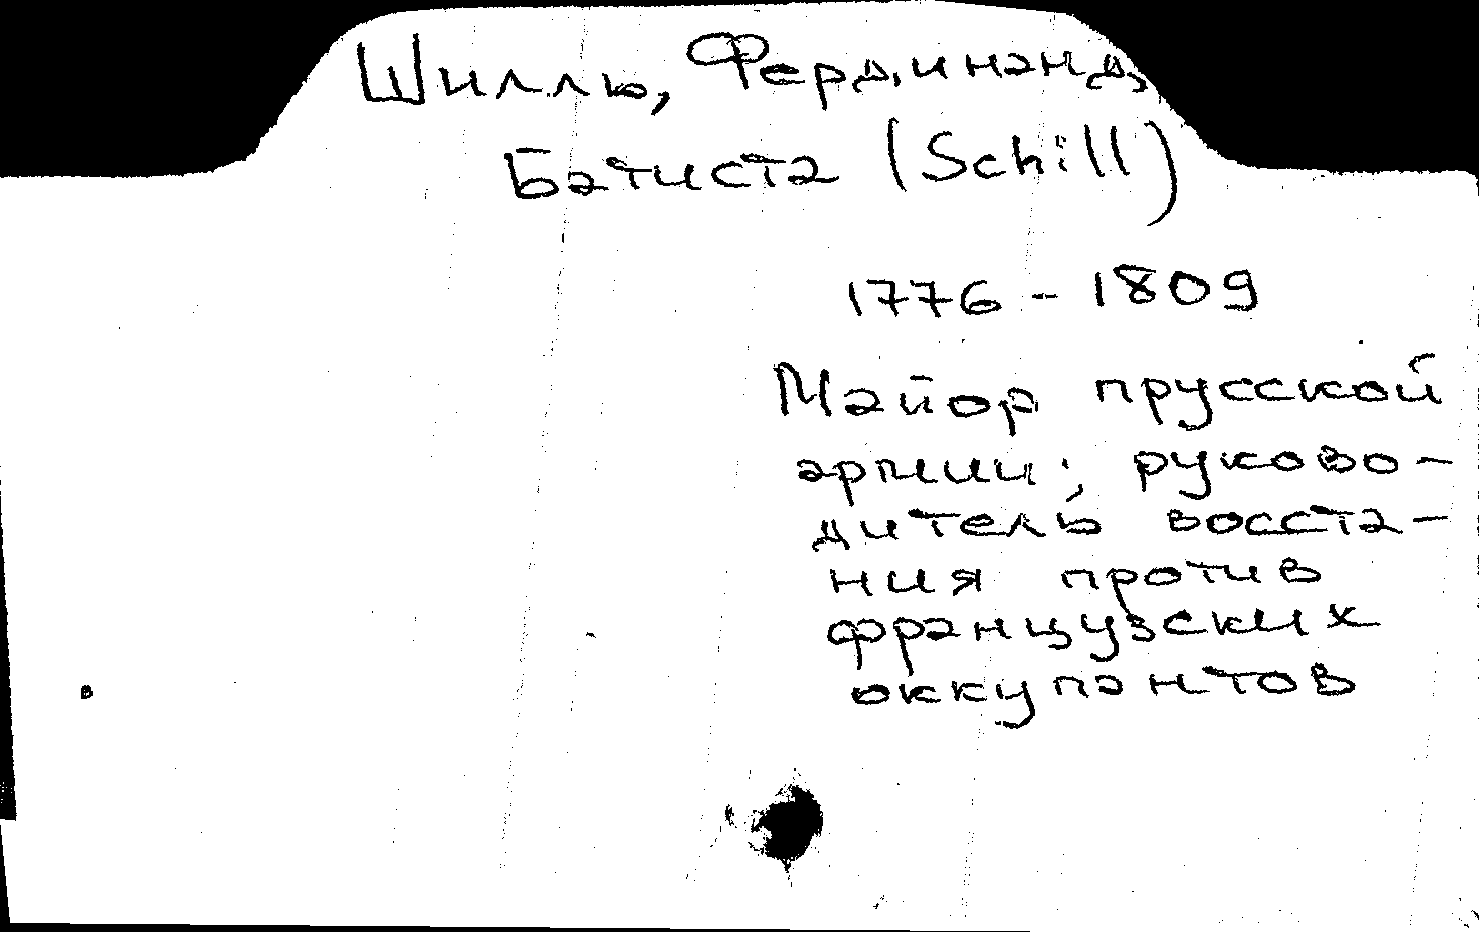 Шилль, Фердинанд,
Батиста (Schill)
1776 - 1809
Майор прусской
армии; руково-
дитель восста-
ния против
французских
оккупантов